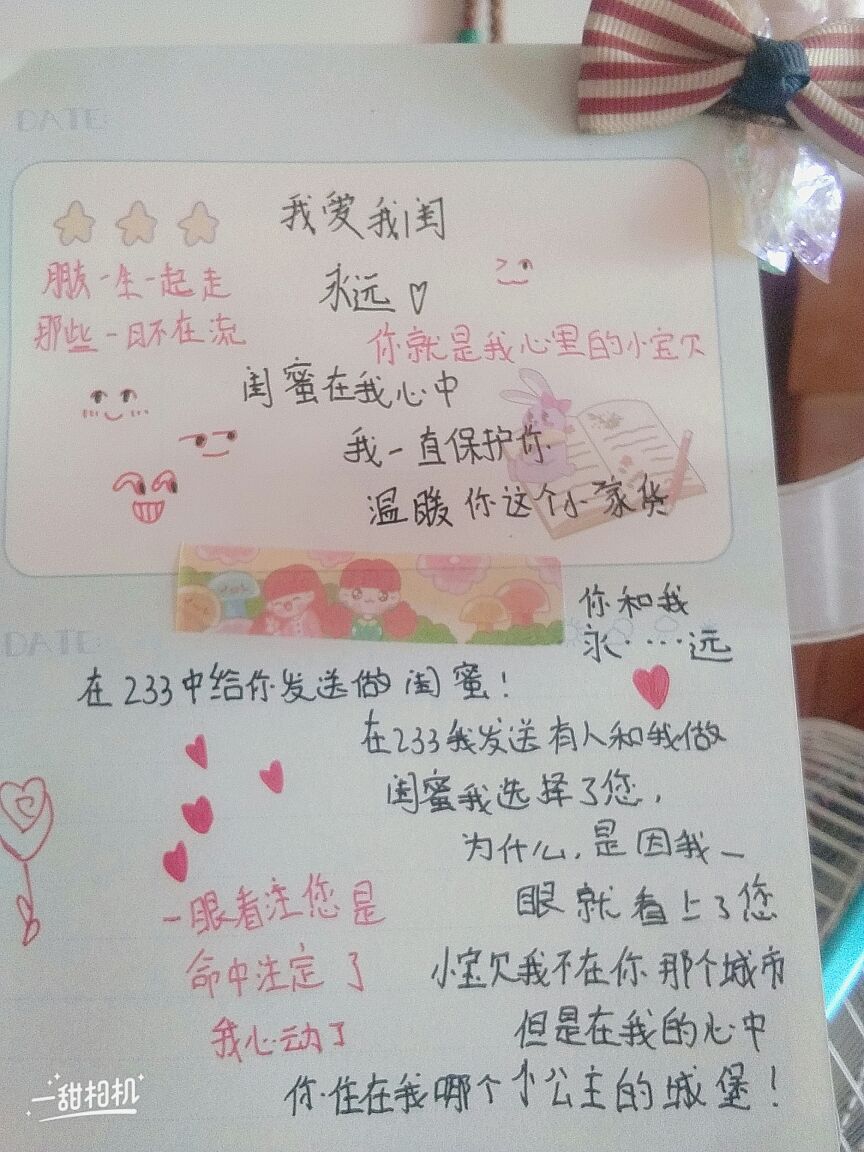 DATE:
我爱我闺
永远♡
朋友一生一起走
那些一日不在流
你就是我心里的小宝欠
闺蜜在我心中
我一直保护你
温暖你这个小家货
DATE:
你和我
永·····远
在233中给你发送做闺蜜！
在233我发送有人和我做
闺蜜我选择了您，
为什么，是因我一
眼就看上了您
一眼看注您是
命中注定了
我心动了
小宝欠我不在你那个城市
但是在我的心中
你住在我哪个小公主的城堡！
一甜相机